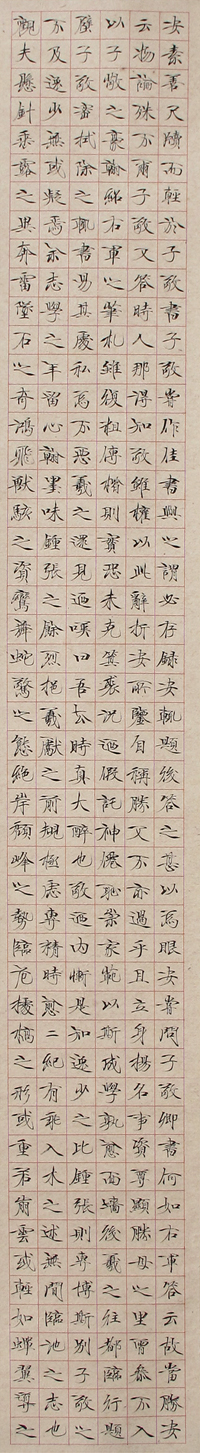 安素善尺牘而輕於子敬書子敬嘗作佳書與之謂必存錄安輒題後答之甚以為眼安嘗問子敬卿書何如右軍答云故當勝安
云物論殊不爾子敬又答時人那得知敬雖權以此辭折安所鑒自稱勝父不亦過乎且立身揚名事資尊顯勝母之里曾參不入
以子敬之豪翰紹右軍之筆札雖復粗傳楷則實恐未克箕裘況迺假託神僊恥崇家範以斯成學孰愈面牆後羲之往都臨行題
壁子敬密拭除之輒書易其處私為不惡羲之還見迺嘆曰吾去時真大醉也敬迺內慚是知逸少之比鍾張則專博斯別子敬之
不及逸少無或疑焉余志學之年留心翰墨味鍾張之餘烈挹羲獻之前規極慮專精時愈二紀有乖入木之述無間臨池之志也
觀夫懸針垂露之異奔雷墜石之奇鴻飛獸駭之資鸞舞蛇驚之態絕岸頹峰之勢臨危據槁之形或重若崩雲或輕如蟬翼導之